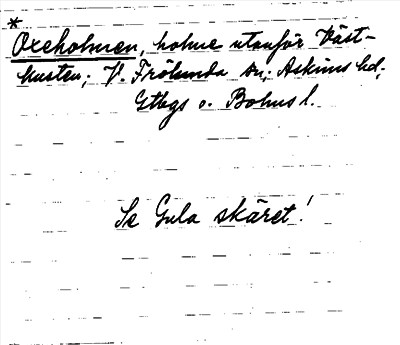 *
Oxeholmen, holme utanför Väst-
kusten; V. Frölunda sn; Askims hd,
Gtbgs o. Bohus l.
Se Gula skäret!